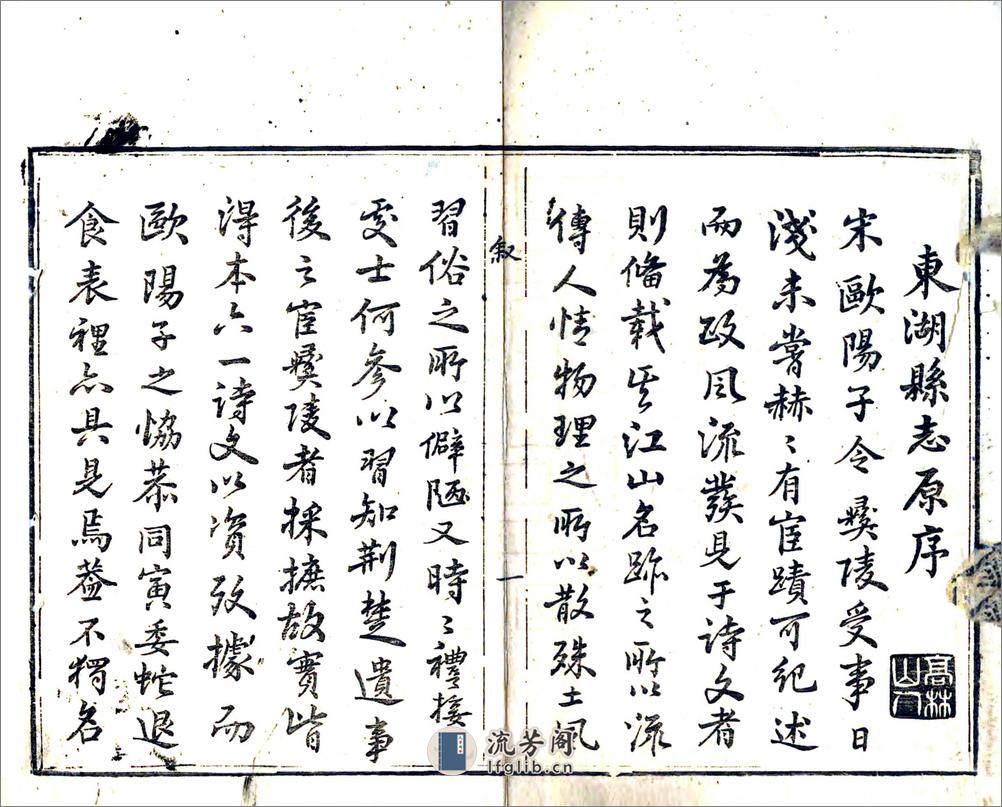 東湖縣志原序
宋歐陽子令彝陵受事日
淺未嘗赫〻有宦蹟可紀述
而為政風流發見于詩文者
則備載其江山名跡之所以流
傳人情物理之所以散殊土風
敘
一
習俗之所以僻陋又時〻禮接
處士何參以習知荆楚遺事
後之宦彝陵者採摭故實皆
得本六一詩文以資攷據而
歐陽子之恊恭同寅委蛇退
食表裡亦具見焉葢不獨名
高林山人
流芳阁
lfglib.cn